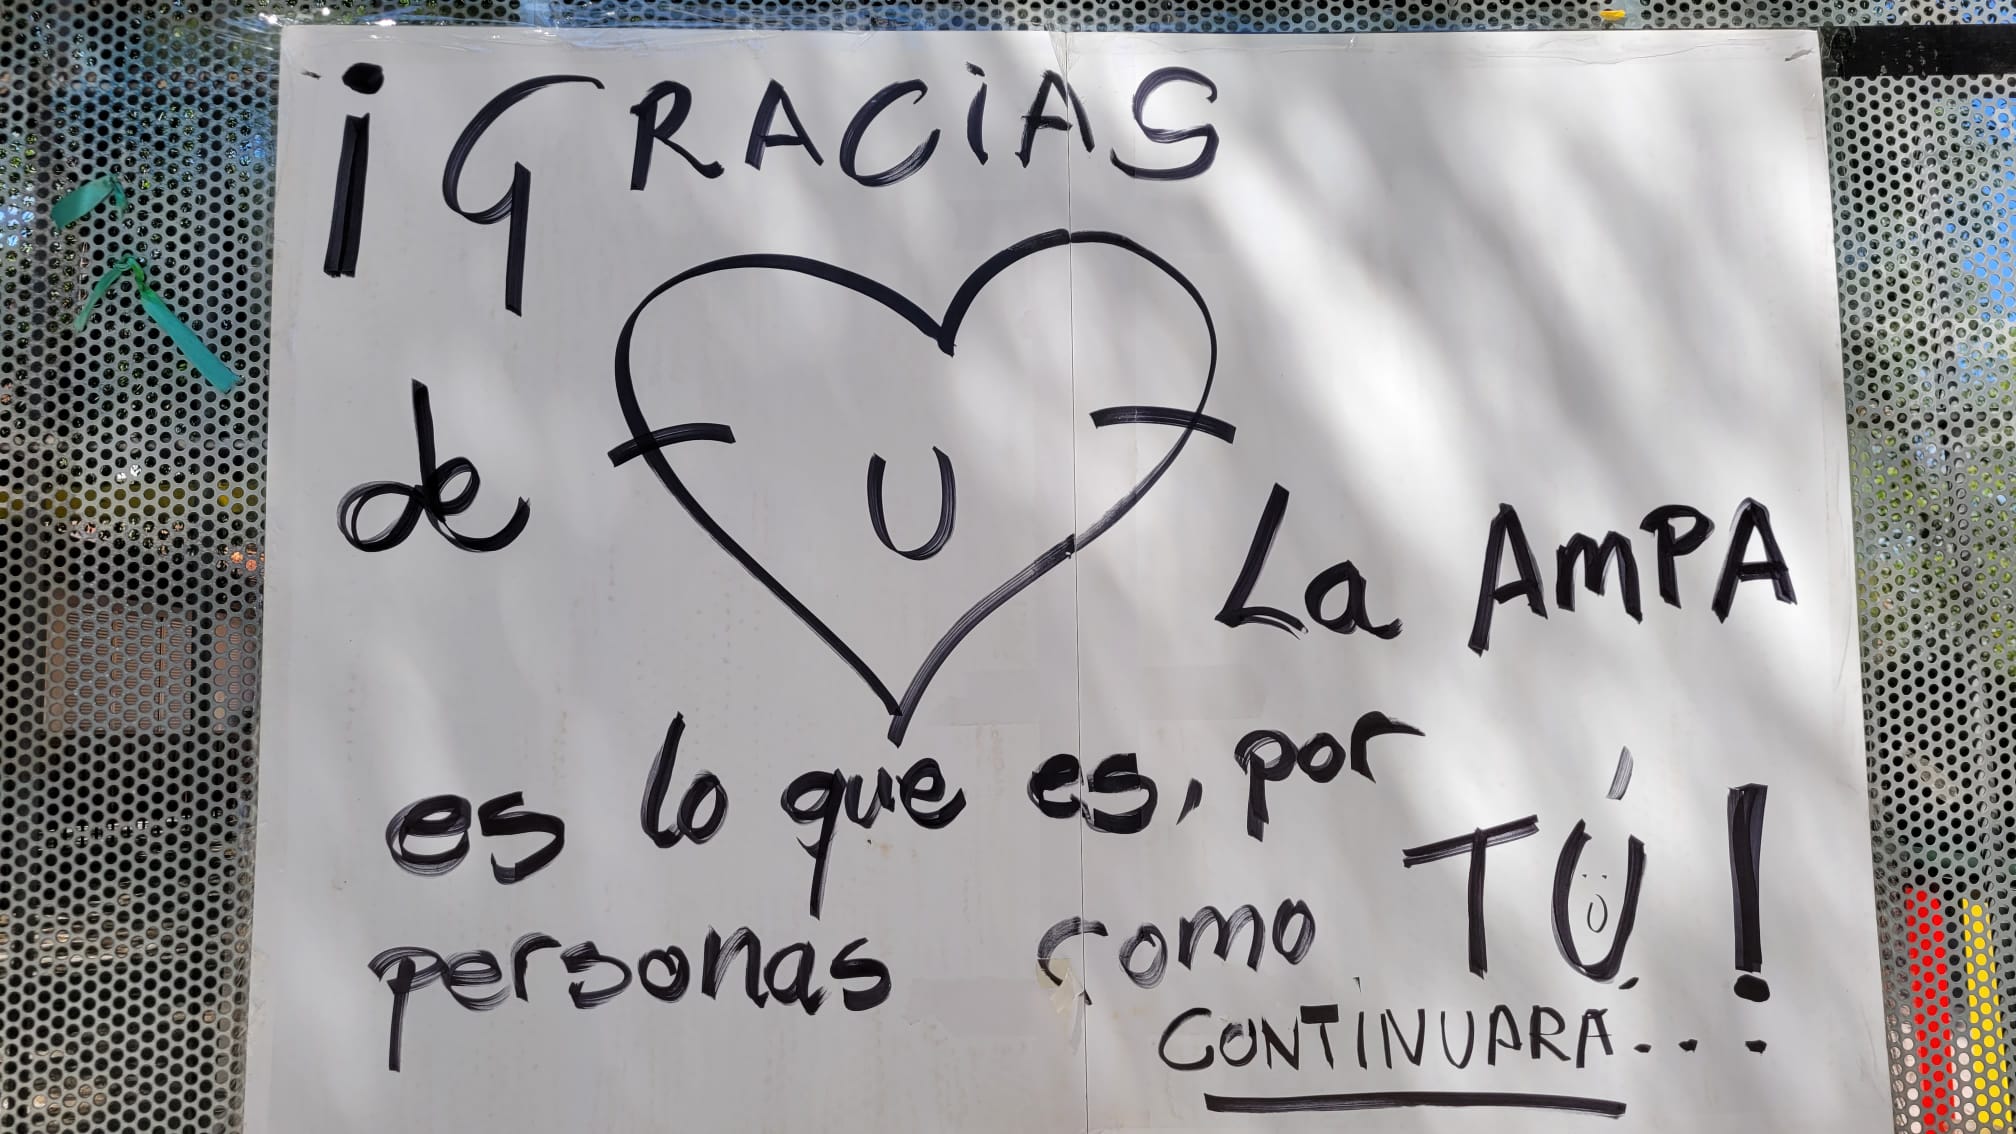 ¡GRACIAS
de U La AMPA
es lo que es, por
personas como TÚ!
CONTINUARÁ...